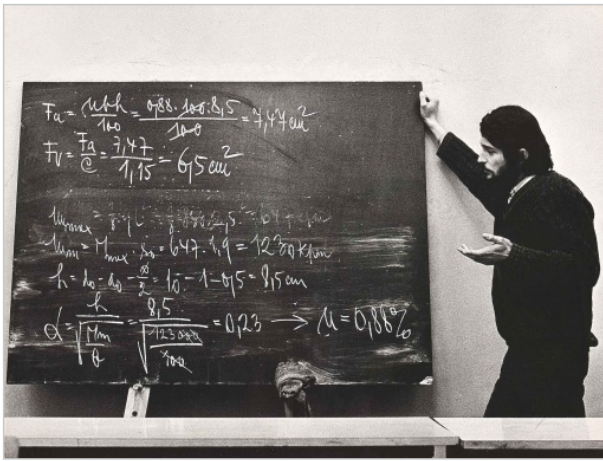 Fa = μbh/100 = 0,88·100·8,5/100 = 7,47 cm²
Fv = Fa/e = 7,47/1,15 = 6,5 cm²
= 647 kpm
Mm = Mmax · so = 647·1,9 = 1230 kpm
h = do - do - ∞/2 = 10 - 1 - 0,5 = 8,5 cm
α = h/√(Mm/b) = 8,5/√(123000/100) = 0,23 → μ = 0,88%